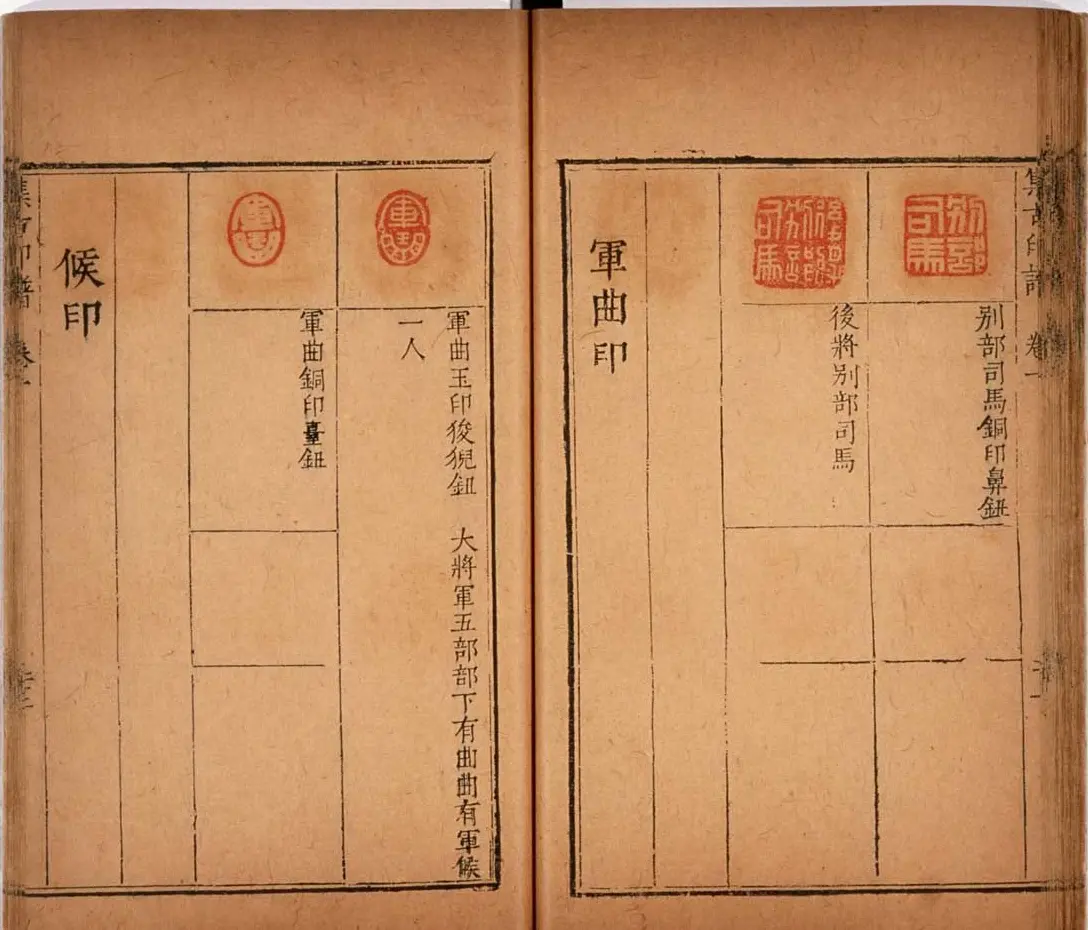 集古印譜 卷一
別部司馬
別部司馬銅印鼻鈕
後將別部司馬
軍曲印
軍曲
軍曲玉印狻猊鈕 大將軍五部部下有曲曲有軍候
一人
軍曲
軍曲銅印臺鈕
候印
集古印譜 卷一